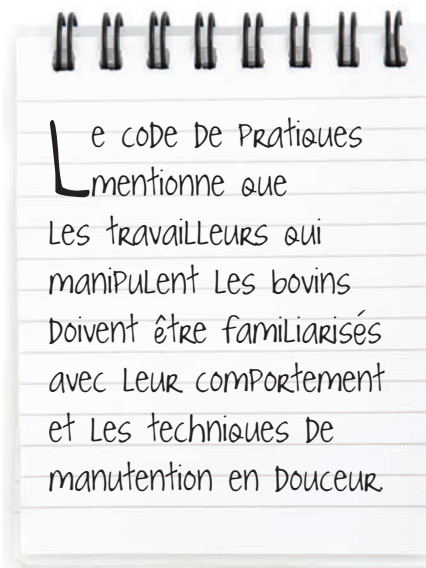 Le code de pratiques
mentionne que
les travailleurs qui
manipulent les bovins
doivent être familiarisés
avec leur comportement
et les techniques de
manutention en douceur